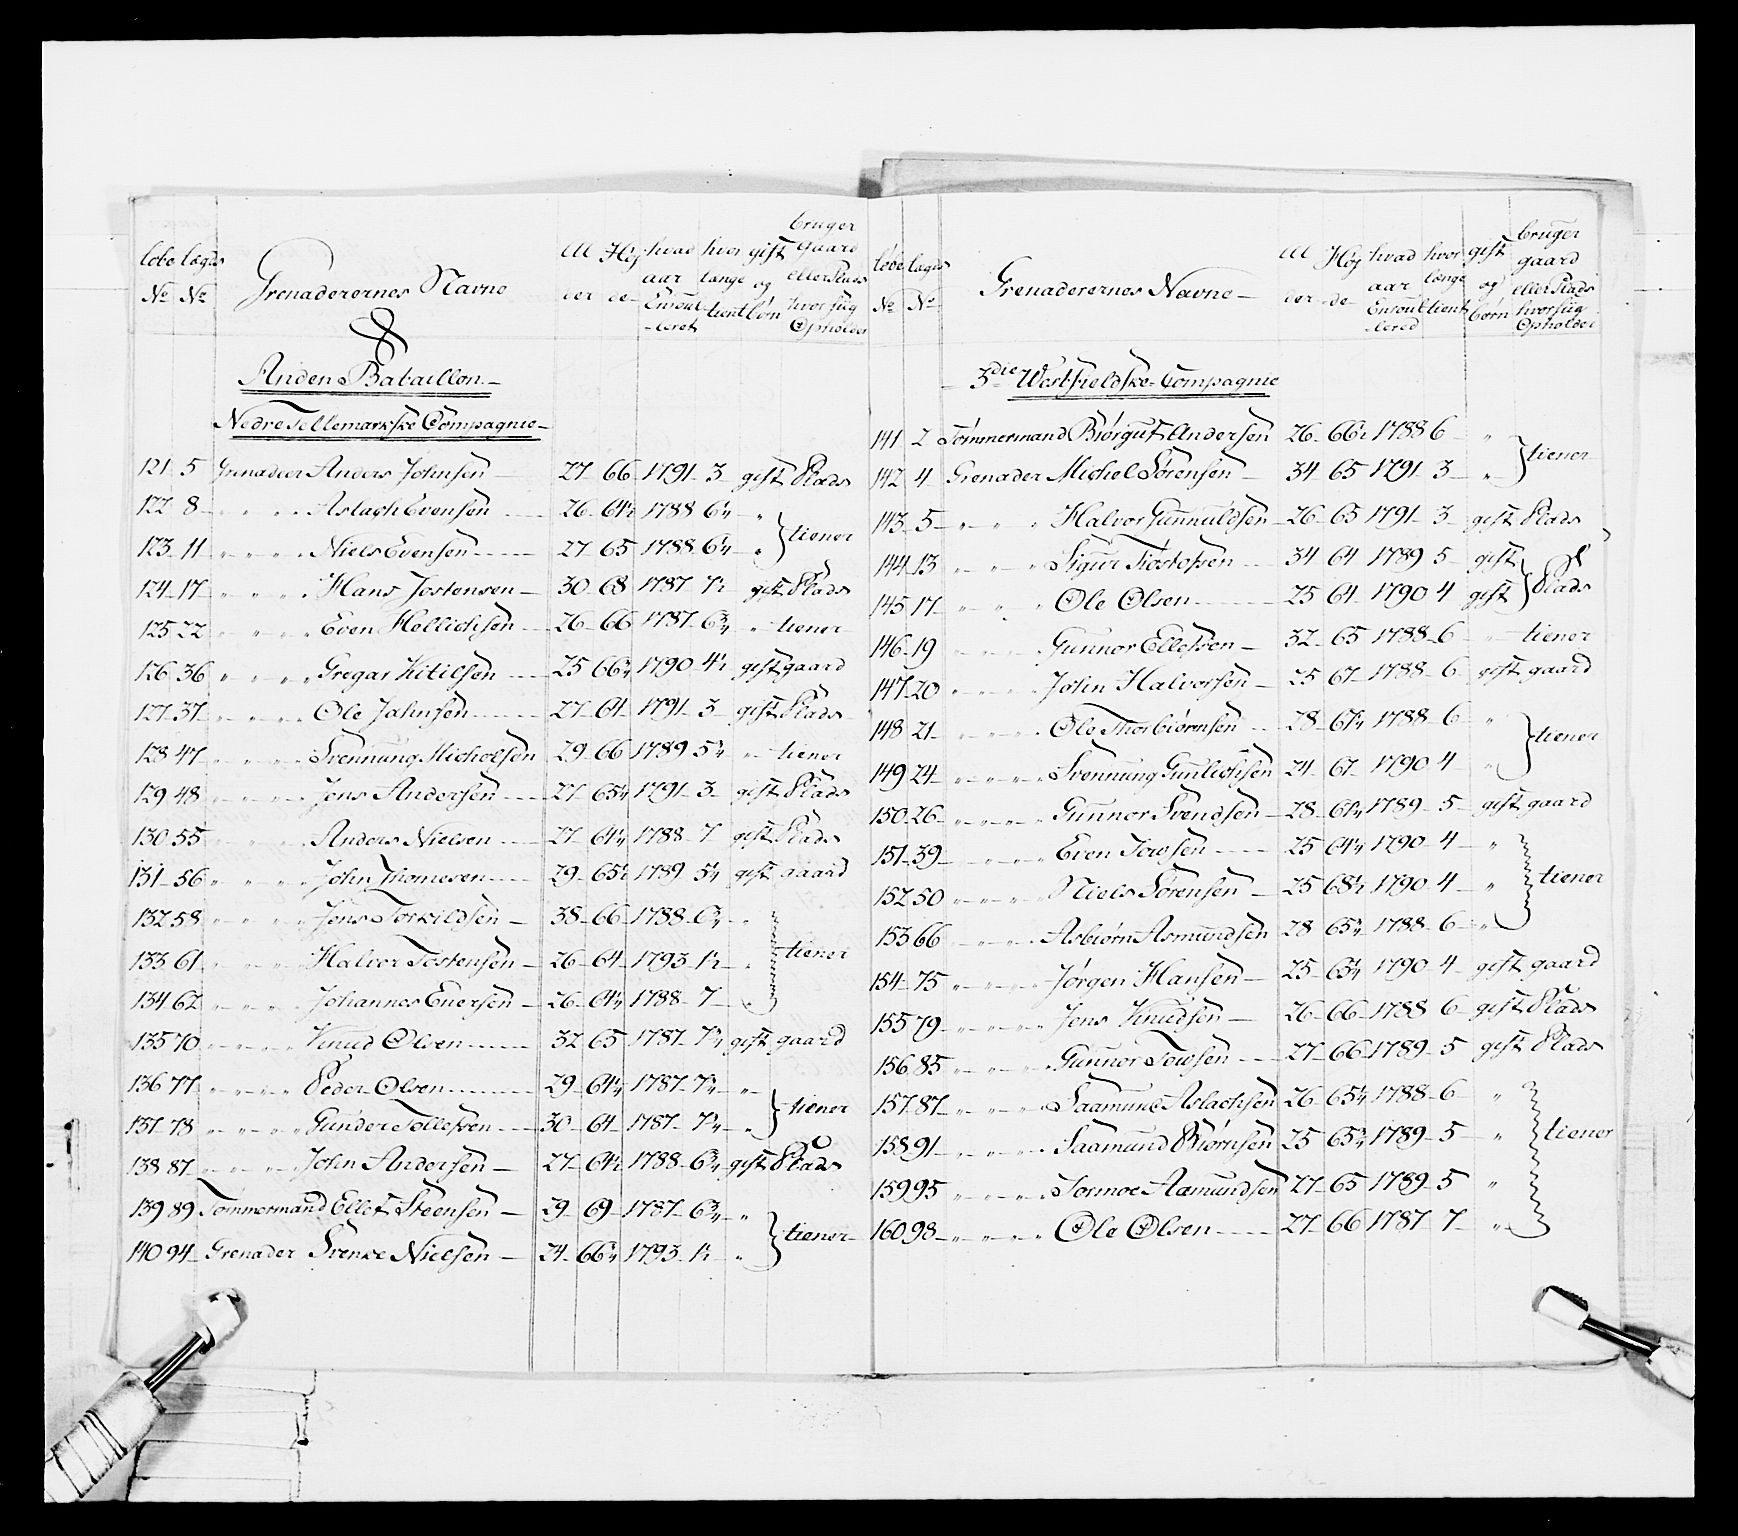 løbe lægds Grenaderernes Navne Al Høj hvad hvor gift bruger
No No der de aar længe og Gaard
Enroul tient børn eller Plads
leret hvor sig
Opholder
Anden Bataillon
Nedre Tellemarkske Compagnie
121 5 Grenadeer Anders Johnsen 27 66 1791 3 gift Plads
122 8 " " " Aslach Evensen 26 1788 "
123 11 " " " Niels Evensen 27 65 1788 " } tiener
124 17 " " " Hans Jostensen 30 68 1787 gift Plads
125 22 " " " Even Hellichsen 26 66 1787 " tiener
126 36 " " " Gregar Kitilsen 25 1790 gift gaard
127 37 " " " Ole Jahnsen 27 64 1791 3 gift Plads
128 47 " " " Svennung Michelsen 29 66 1789 " tiener
129 48 " " " Jens Andersen 27 1791 3 gift Plads
130 55 " " " Anders Nielsen 27 1788 7 gift Plads
131 56 " " " John Thomesen 29 1789 gift gaard
132 58 " " " Jens Torkildsen 38 66 1788 "
133 61 " " " Halvor Tostensen 26 64 1793 " } tiener
134 62 " " " Johannes Enersen 26 1788 7 "
135 70 " " " Knud Olsen 32 65 1787 gift gaard
136 77 " " " Peder Olsen 29 1787 "
137 78 " " " Gunder Tollefsen 30 64 1787 " } tiener
138 87 " " " John Andersen 27 1788 gift Plads
139 89 Tømmermand Ellef Steensen 29 69 1787 "
140 94 Grenader Svenke Nielsen 24 1793 " } tiener
løbe lagds Grenaderernes Navne Al Høj hvad hvor gift bruger
No No der de aar længe og gaard
Enroul tient børn eller Plads
lered hvor sig
Opholder
3die Westfieldske Compagnie
141 2 Tømmermand Biørguf Andersen 26 1788 6 "
142 4 Grenader Michel Sørensen 34 65 1791 3 " } tiener
143 5 " " " Halvor Gunnuldsen 26 65 1791 3 gift Plads
144 13 " " " Sigur Tiostofsen 34 64 1789 5 gift
145 17 " " " Ole Olsen 25 64 1790 4 gift } Plads
146 19 " " " Gunnor Ellefsen 32 65 1788 6 " tiener
147 20 " " " John Halvorsen 25 67 1788 6 gift gaard
148 21 " " " Ole Thorbiørnsen 28 1788 6 "
149 24 " " " Svennung Gunlichsen 24 67 1790 4 " } tiener
150 26 " " " Gunnor Svendsen 28 1789 5 gift gaard
151 39 " " " Even Towsen 25 1790 4 "
152 50 " " " Niels Sørensen 25 1790 4 " } tiener
153 66 " " " Asbiørn Asmundsen 28 1788 6 "
154 75 " " " Jørgen Hansen 25 1790 4 gift gaard
155 79 " " " Jens Knudsen 26 66 1788 6 gift Plads
156 85 " " " Gunnor Towsen 27 66 1789 5 gift Plads
157 87 " " " Saamund Aslachsen 26 1788 6 "
158 91 " " " Saamund Biørnsen 25 1789 5 " } tiener
159 95 " " " Tormoe Aamundsen 27 65 1789 5 "
160 98 " " " Ole Olsen 27 66 1787 7 "